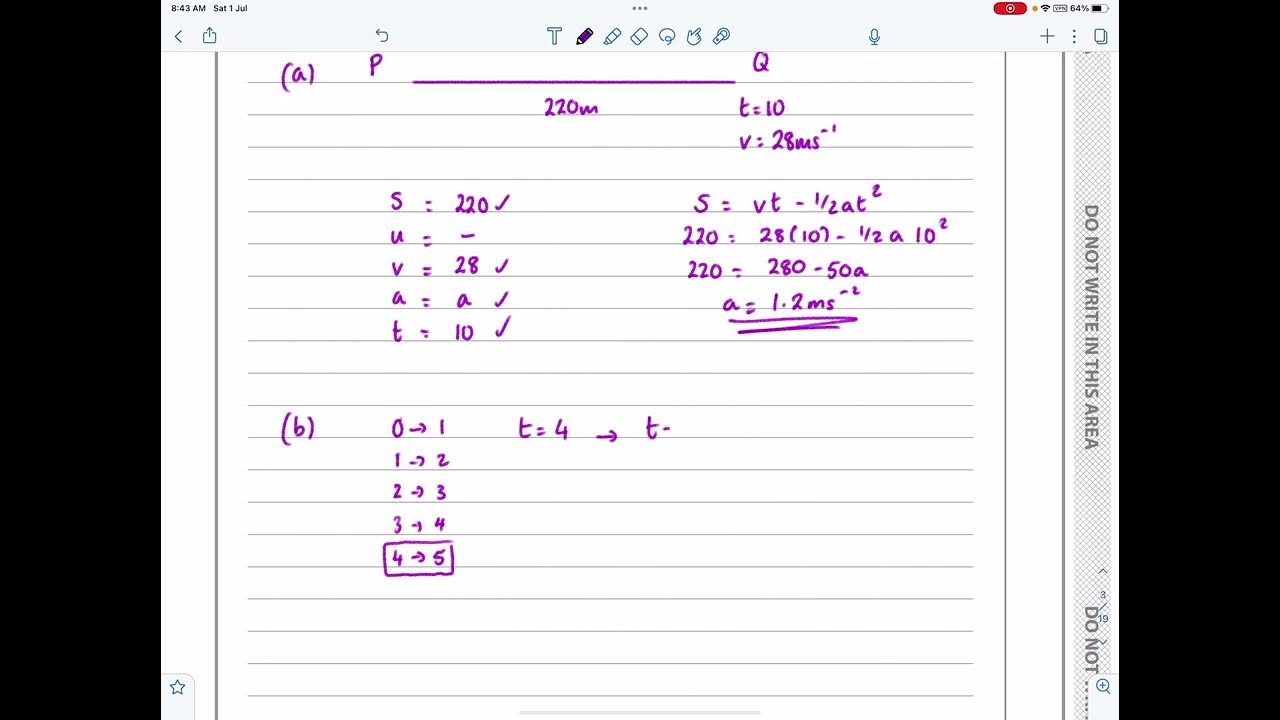 8:43 AM Sat 1 Jul
VPN 64%
(a) P Q
220m t=10
v = 28ms⁻¹
S = 220 ✓
u = –
v = 28 ✓
a = a ✓
t = 10 ✓
S = vt - 1/2at²
220 = 28(10) - 1/2 a 10²
220 = 280 - 50a
a = 1.2ms⁻²
(b) 0→1 t=4 → t-
1→2
2→3
3→4
4→5
3
19
DO NOT WRITE IN THIS AREA
DO NOT